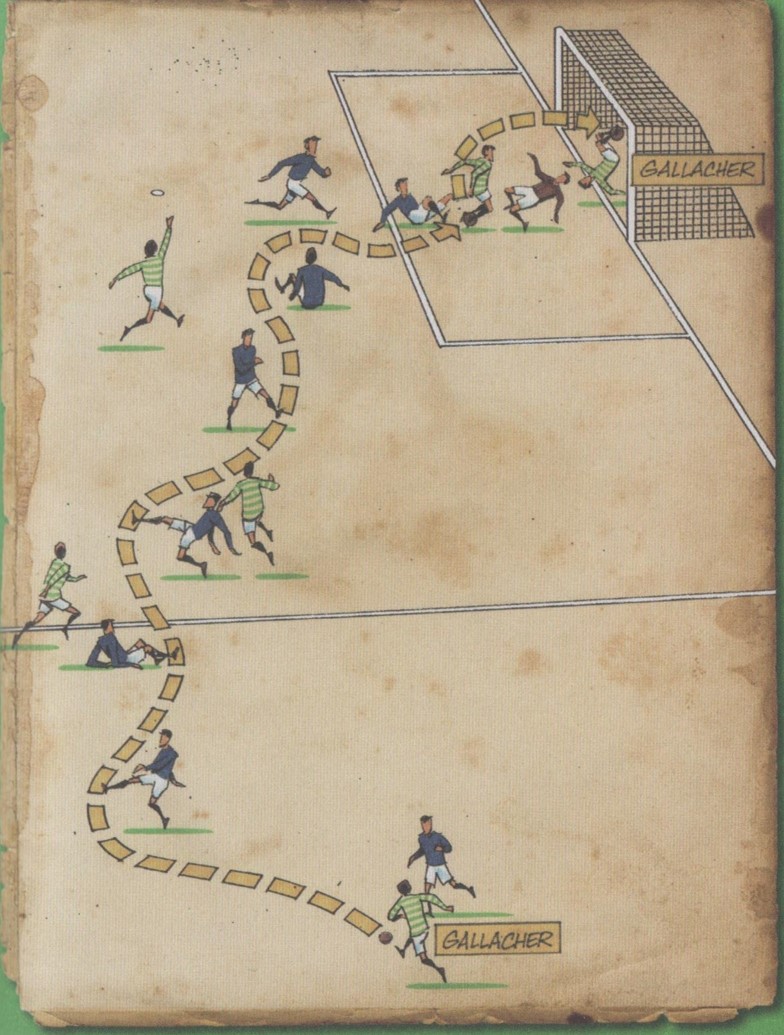 GALLACHER
GALLACHER